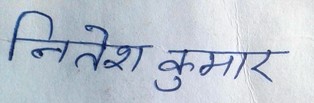 नितेश कुमार